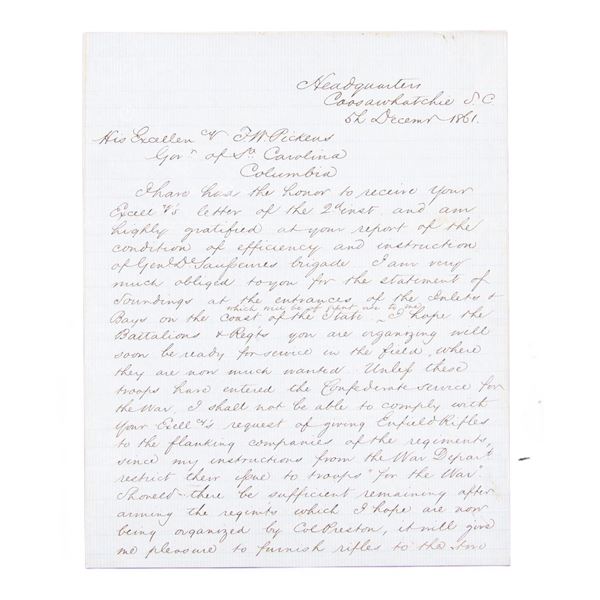 Headquarters
Coosawhatchie S.C.
5h Decemr 1861.
His Excellen cy F.W. Pickens
Govr of So Carolina
Columbia
I have had the honor to receive Your
Excell cy's letter of the 2d inst. and am
highly gratified at your report of the
condition of efficiency and instruction
of Genl De Saussures brigade. I am very
much obliged to you for the statement of
Soundings at the entrances of the Inlets &
which will be of great use to me
Bays on the Coast of the State. I hope the
Battalions & Regts you are organizing will
soon be ready for service in the field, where
they are now much wanted. Unless these
troops have entered the Confederate service for
the War, I shall not be able to comply with
Your Excell cy's request of giving Enfield Rifles
to the flanking companies of the regiments,
since my instructions from the War Depart
restrict their issue to troops "for the War".
Should there be sufficient remaining after
arming the regimts which I hope are now
being organized by Col Preston, it will give
me pleasure to furnish rifles to the two